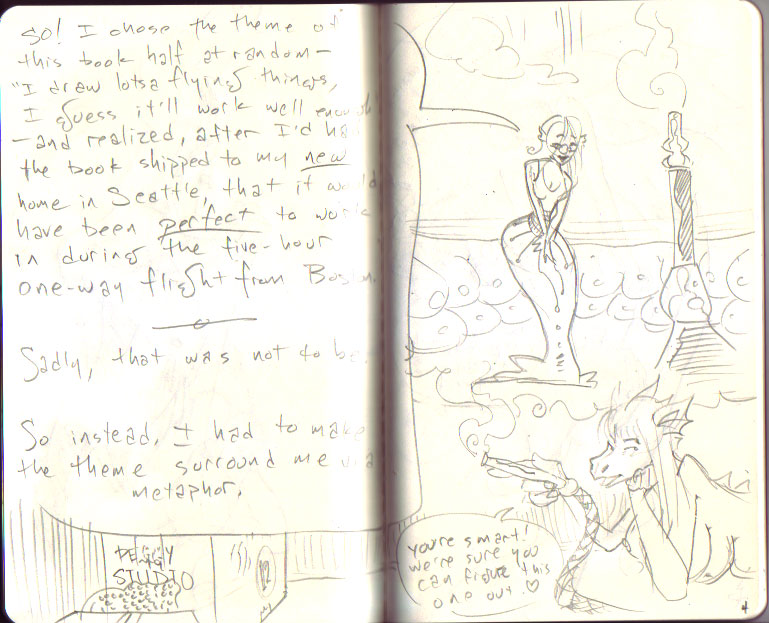 So! I chose the theme of
this book half at random—
"I draw lotsa flying things,
I guess it'll work well enough
—and realized, after I'd ha
the book shipped to my new
home in Seattle, that it would
have been perfect to work
in during the five-hour
one-way flight from Boston.
Sadly, that was not to be.
So instead, I had to make
the theme surround me via
metaphor.
STUDIO
you're smart!
we're sure you
can figure this
one out! ♡
4